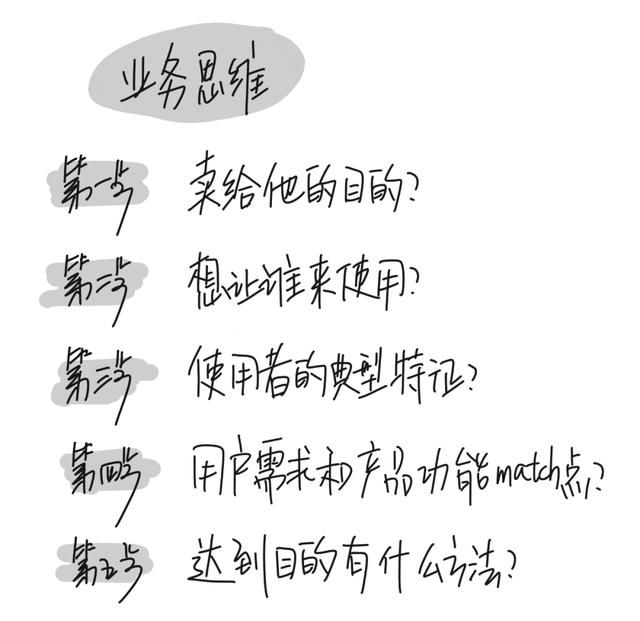 业务思维
第一步 卖给他的目的?
第二步 想让谁来使用?
第三步 使用者的典型特征?
第四步 用户需求和产品功能match点?
第五步 达到目的有什么方法?